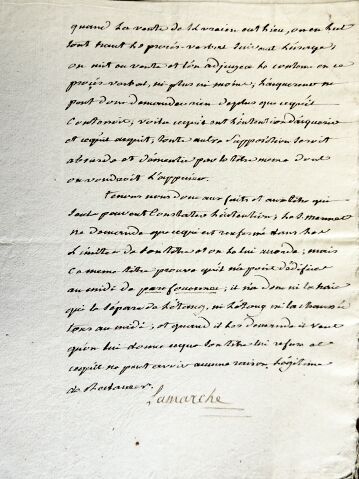 quand la vente de Thvraien eut lieu, on en fut
tout haut le procès verbal suivant l'usage;
on mit en vente et l'on adjugea le contenu en ce
procès verbal, ni plus ni moins; l'acquereur ne
peut donc demander rien de plus que ce qu'il
contenoit; voila ce qu'il eut l'intention d'acquerir
et ce qu'il acquit; toute autre supposition seroit
absurde et dementie par le titre meme dont
on voudroit l'appuier.
tenons nous donc aux faits et au titre qui
seul peuvent constater l'intention; le
ne demande que ce qui est renfermé dans les
limittes de son titre et on le lui accorde; mais
ce meme titre prouve qu'il n'a point d'édifice
au midi de; il n'a donc ni la haie
qui le separe de l'étang, ni l'étang ni la chaussée
tous au midi; et quand il les demande il veut
qu'on lui donne ce que son titre lui refuse et
ce qu'il ne peut avoir aucune raison légitime
de reclamer.
Lamarche